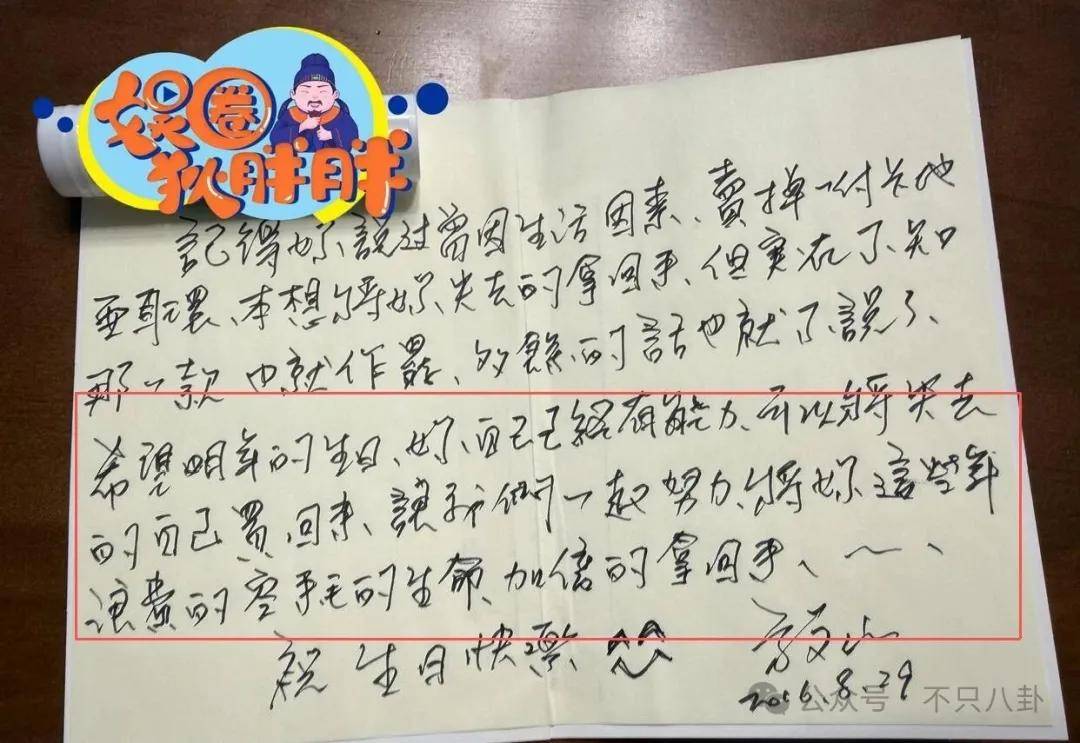 娱圈
狄胖胖
記得妳說过曾因生活因素、賣掉一付卡地
亞耳環、本想將妳失去的拿回來、但实在不知
那一款也就作罷、多餘的話也就不說了、
希望明年的生日、妳自己已經有能力、可以將失去
的自己買回來、讓我們一起努力、將妳這些年
浪費的空耗的生命、加倍的拿回來、
祝 生日快樂
2016.8.29
公众号 不只八卦